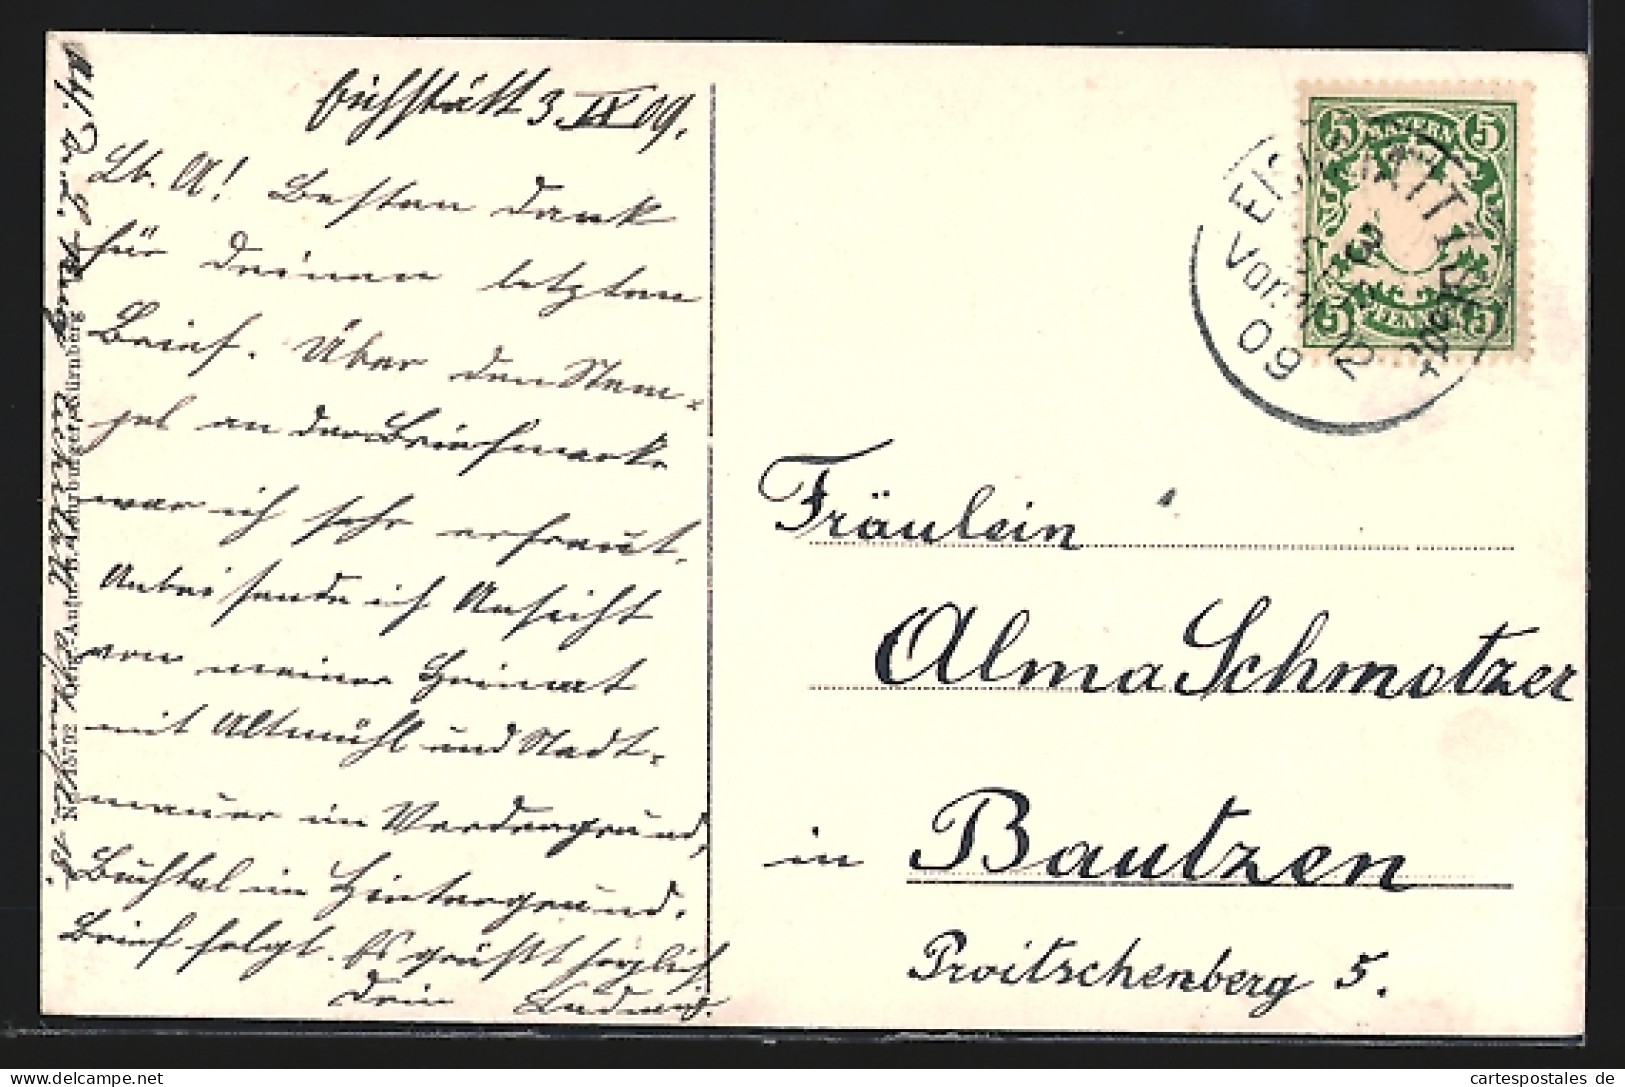 Eichstätt 3. IX 09.
Lb. A! Besten Dank
für Deinen letzten
Brief. Über den Stem-
pel an der Briefmarke
war ich sehr erfreut.
Anbei sende ich Ansicht
von meiner Heimat
mit Altmühl und Stadt-
mauer im Vordergrund,
Buchtal im Hintergrund.
Brief folgt. Es grüßt herzlich
Dein Ludwig.
No. 18792
Nürnberg
BAYERN
5 5
5 5
PFENNIG
EICHSTÄTT
3
Vorm. 12
09
Fräulein
Alma Schmotzer
in Bautzen
Proitschenberg 5.
www.cartespostales.de